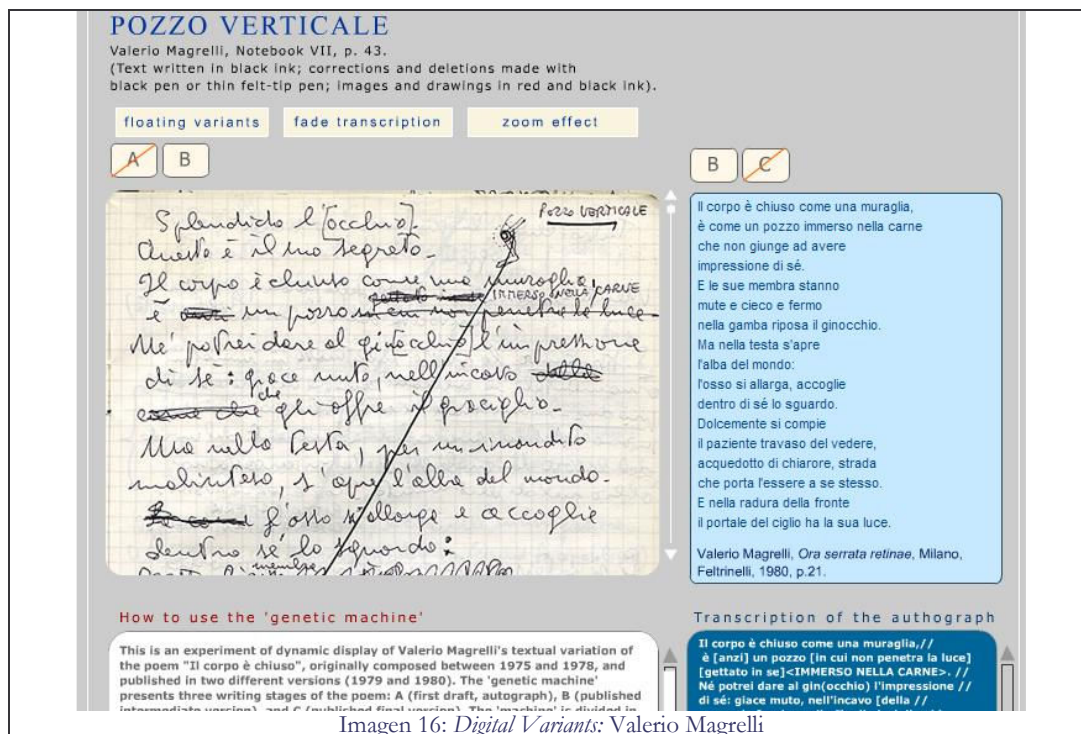 POZZO VERTICALE
Valerio Magrelli, Notebook VII, p. 43.
(Text written in black ink; corrections and deletions made with
black pen or thin felt-tip pen; images and drawings in red and black ink).
floating variants
fade transcription
zoom effect
A
B
Splendido l'[occhio].
Questo è il suo segreto-
Il corpo è chiuso come una muraglia,
POZZO VERTICALE
IMMERSO NELLA CARNE
è un pozzo in cui non penetra la luce-
Né potrei dare al gin[occhio] l'impressione
di sé: giace muto, nell'incavo della
che
gli offre il
Ma nella testa, per un inaudito
malinteso, s'apre l'alba del mondo-
l'osso s'allarga e accoglie
dentro sé lo sguardo:
B
C
Il corpo è chiuso come una muraglia,
è come un pozzo immerso nella carne
che non giunge ad avere
impressione di sé.
E le sue membra stanno
mute e cieco e fermo
nella gamba riposa il ginocchio.
Ma nella testa s'apre
l'alba del mondo:
l'osso si allarga, accoglie
dentro di sé lo sguardo.
Dolcemente si compie
il paziente travaso del vedere,
acquedotto di chiarore, strada
che porta l'essere a se stesso.
E nella radura della fronte
il portale del ciglio ha la sua luce.
Valerio Magrelli, Ora serrata retinae, Milano,
Feltrinelli, 1980, p.21.
How to use the 'genetic machine'
This is an experiment of dynamic display of Valerio Magrelli's textual variation of
the poem "Il corpo è chiuso", originally composed between 1975 and 1978, and
published in two different versions (1979 and 1980). The 'genetic machine'
presents three writing stages of the poem: A (first draft, autograph), B (published
intermediate version), and C (published final version). The 'machine' is divided in
Transcription of the authograph
Il corpo è chiuso come una muraglia,//
è [anzi] un pozzo [in cui non penetra la luce]
[gettato in se]<IMMERSO NELLA CARNE>. //
Né potrei dare al gin(occhio) l'impressione //
di sé: giace muto, nell'incavo [della //
Imagen 16: Digital Variants: Valerio Magrelli